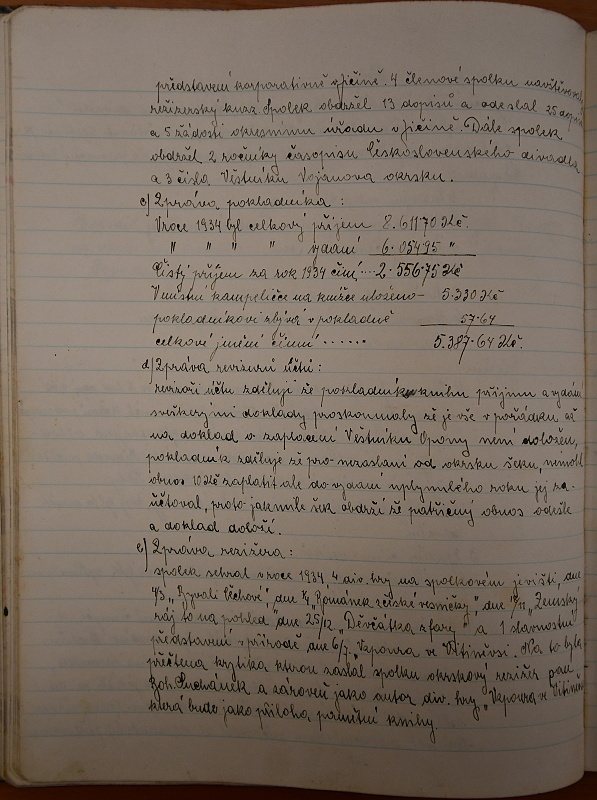 představení korporativně v Jičíně. 4 členové spolku navštěvovali
režizerský kurz. Spolek obdržel 13 dopisů a odeslal 25 dopisů
a 5 žádostí okresnímu úřadu v Jičíně. Dále spolek
obdržel 2 ročníky časopisu Československého divadla
a 3 čísla Věstníku Vojanova okrsku.
c) Zpráva pokladníka :
V roce 1934 byl celkový příjem 8.611·70 Kč.
" " " " vydání 6.054·95 "
Čistý příjem za rok 1934 činí .... 2.556·75 Kč
V místní kampeličce na knížce uloženo – 5.330 Kč
pokladníkovi zbývá v pokladně 57·64
celkové jmění činní ...... 5.387·64 Kč.
d) Zpráva revizorů účtů :
revizoři účtu zdělují že pokladník knihu příjmu a vydání
s veškerými doklady proskoumaly že je vše v pořádku až
na doklad o zaplacení Věstníku Opony není doložen,
pokladník zděluje že pro nezaslání od okrsku šeku, nemohl
obnos 10 Kč zaplatit ale do vydání uplynulého roku jej za-
účtoval, proto jakmile šek obdrží že patřičný obnos odešle
a doklad doloží.
e) Zpráva režizera :
spolek sehrál v roce 1934 4 div. hry na spolkovém jevišti, dne
4/3 „Bývali Čechové", dne 1/4 „Románek z české vesničky" dne „Zemský
ráj to na pohled" dne 25/12 „Děvčátka z fary" a 1 slavnostní
představení v přírodě dne 6/7 „Vzpoura ve Vitiněvsi. Na to byla
přečtena krytika kterou zaslal spolku okrskový režizér pan
Boh. Suchánek a zároveň jako autor div. hry „Vzpoura ve Vitiněvsi
která bude jako příloha pamětní knihy.